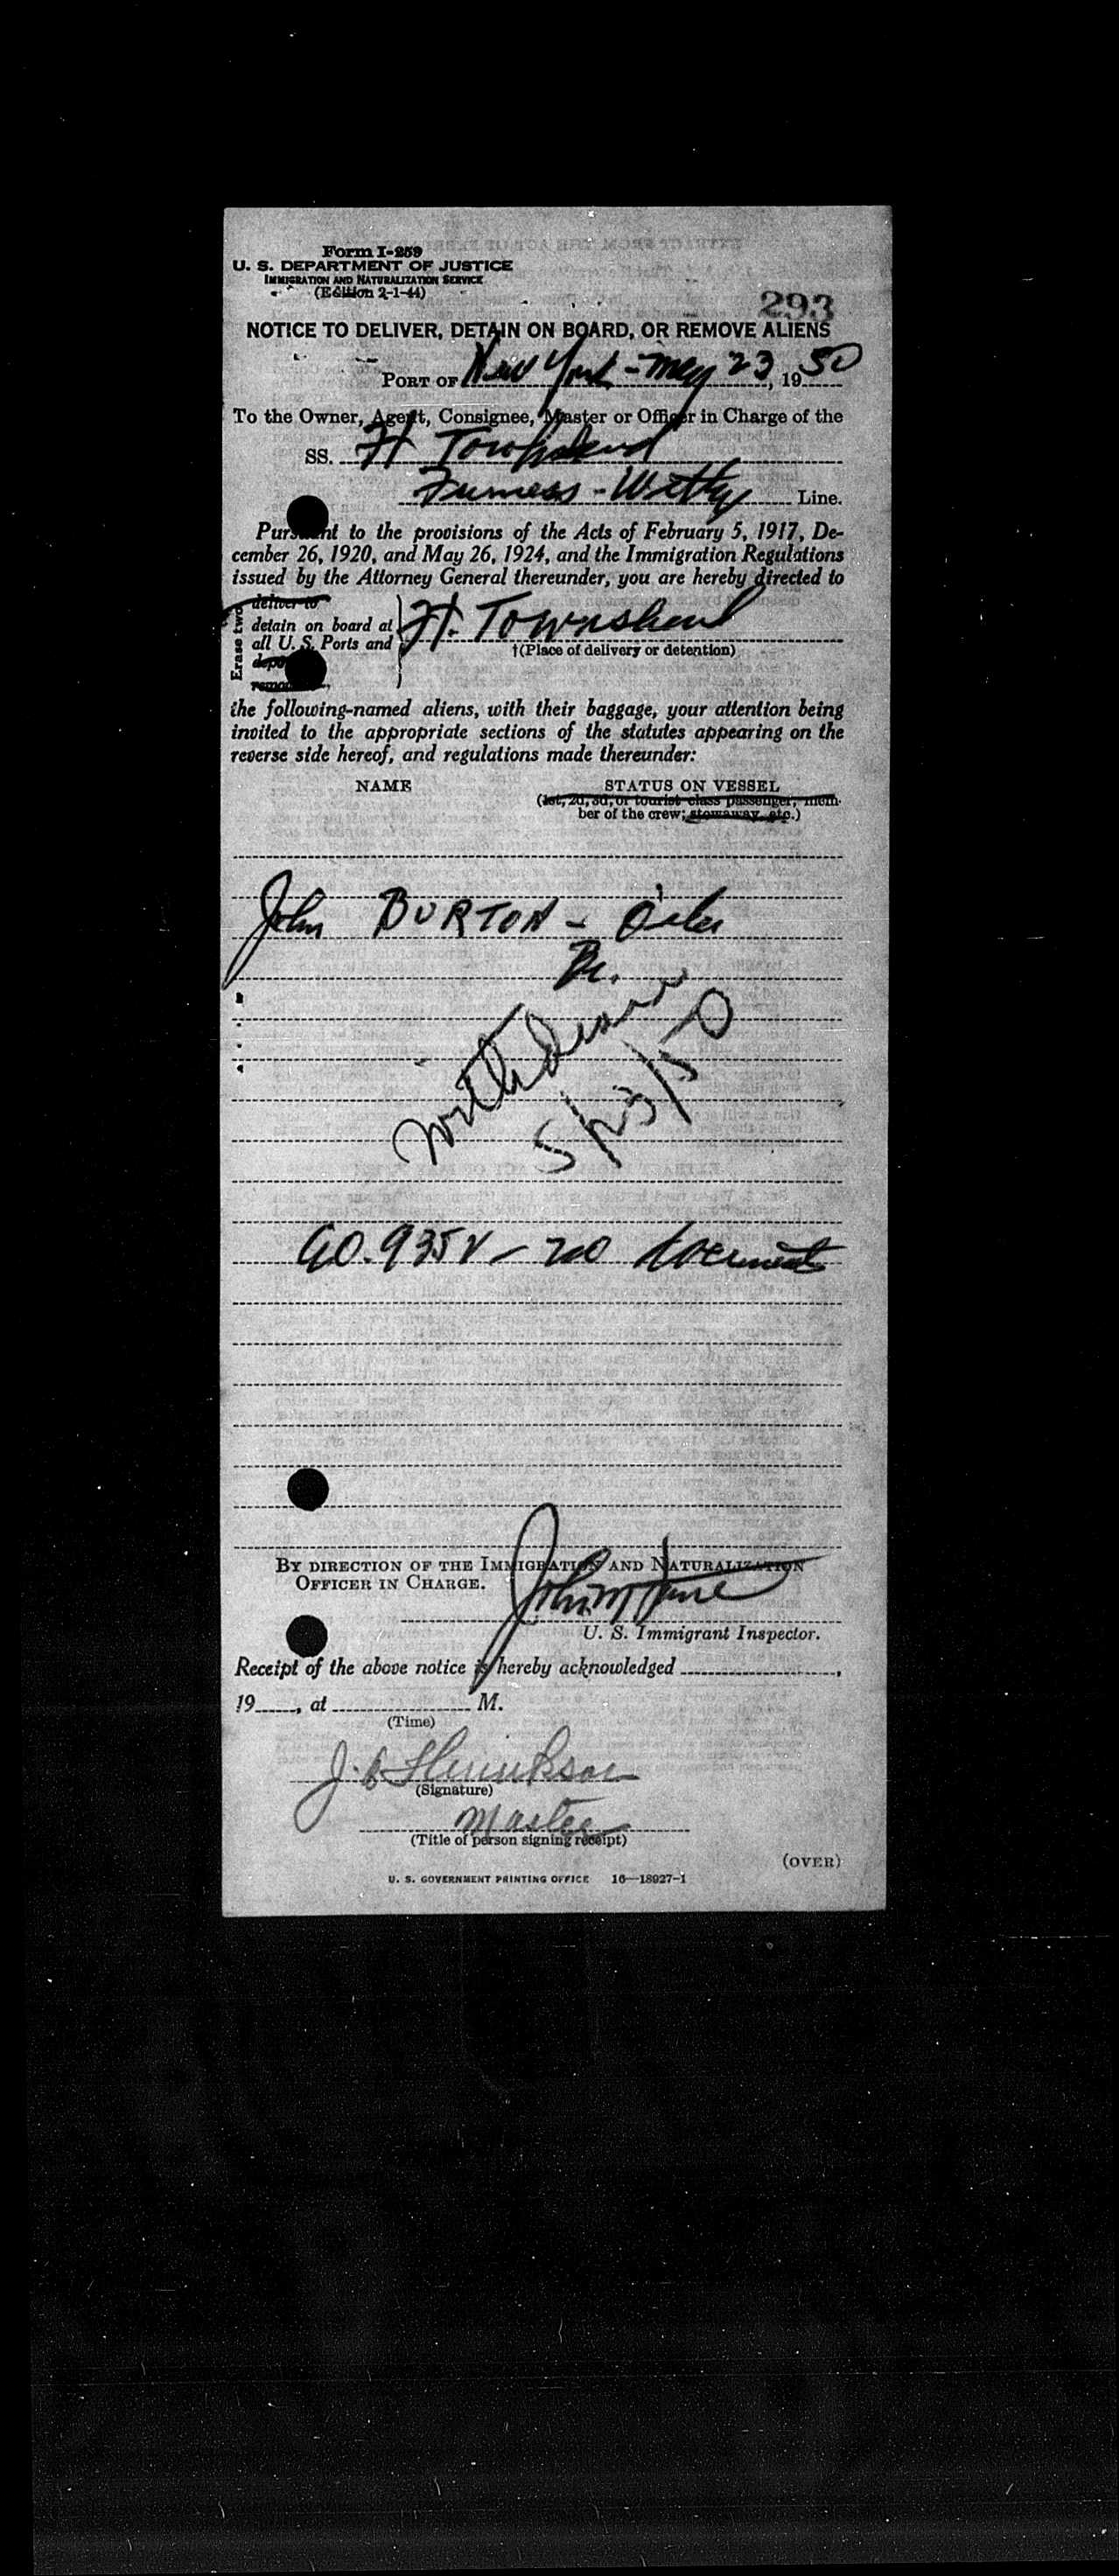 Form I-259
U. S. DEPARTMENT OF JUSTICE
IMMIGRATION AND NATURALIZATION SERVICE
(Edition 2-1-44)
293
NOTICE TO DELIVER, DETAIN ON BOARD, OR REMOVE ALIENS
PORT OF New York - May 23, 1950
To the Owner, Agent, Consignee, Master or Officer in Charge of the
SS. H Townshend
Furness - Withy Line.
Pursuant to the provisions of the Acts of February 5, 1917, De-
cember 26, 1920, and May 26, 1924, and the Immigration Regulations
issued by the Attorney General thereunder, you are hereby directed to
Erase two
deliver to
detain on board at
all U. S. Ports and
H. Townshend
†(Place of delivery or detention)
the following-named aliens, with their baggage, your attention being
invited to the appropriate sections of the statutes appearing on the
reverse side hereof, and regulations made thereunder:
NAME STATUS ON VESSEL
(1st, 2d, 3d, or tourist class passenger; mem-
ber of the crew; stowaway, etc.)
John BURTON - Oiler
Br.
Withdrawn
5/23/50
no documents
BY DIRECTION OF THE IMMIGRATION AND NATURALIZATION
OFFICER IN CHARGE.
John M
U. S. Immigrant Inspector.
Receipt of the above notice is hereby acknowledged ,
19 , at M.
(Time)
(Signature)
Master
(Title of person signing receipt)
(OVER)
U. S. GOVERNMENT PRINTING OFFICE 16—18927-1